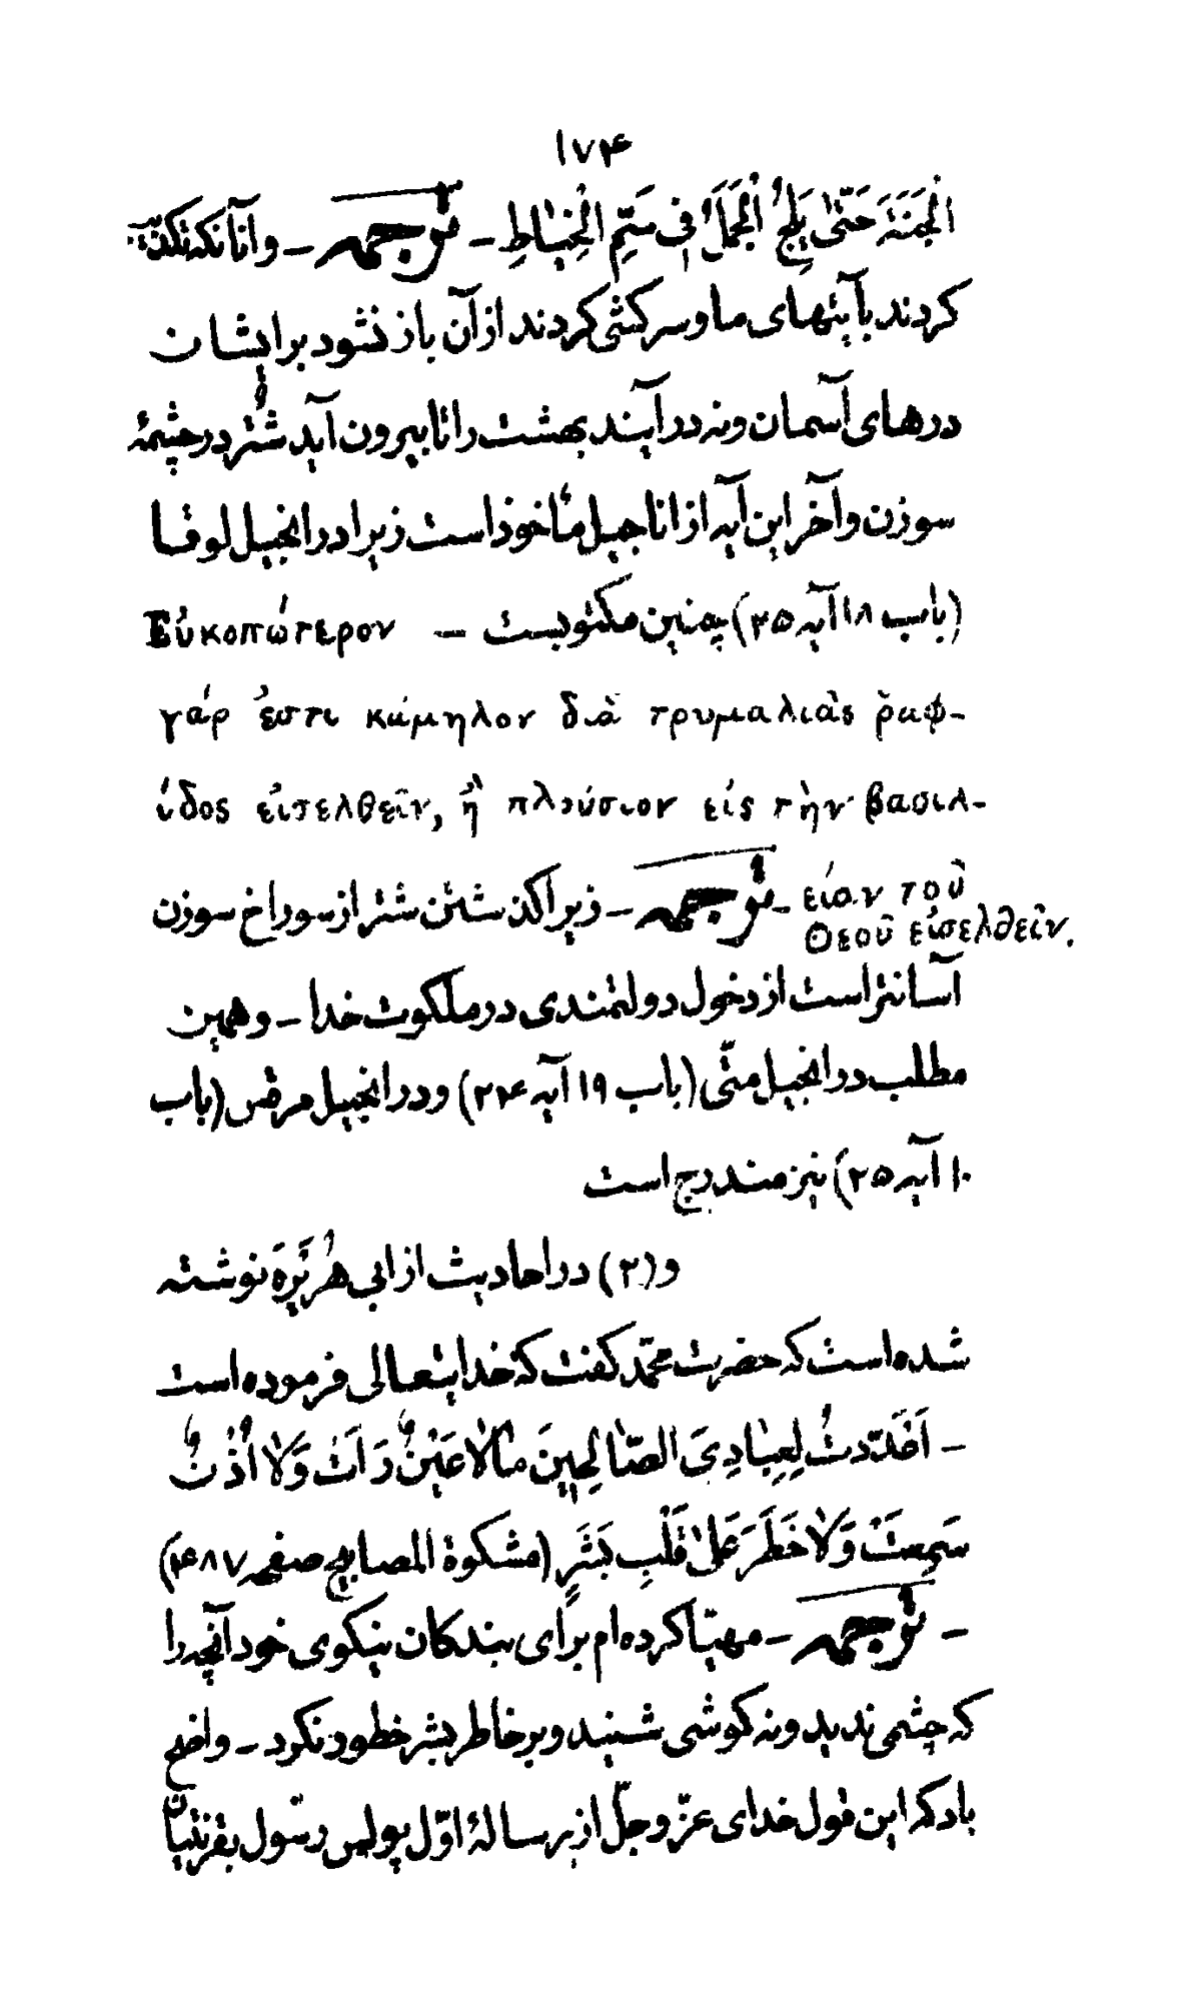 ۱۷۴
الْجَنَّةَ حَتّٰی یَلِجُ الْجَمَلُ فِی سَمِّ الْخِیَاطِ – ترجمه – وآنانکه تکذیب
کردند بآیتهای ما وسرکشی کردند از آن باز نشود برایشان
درهای آسمان ونه در آیند بهشت را تا بیرون آید شتر در چشمهٔ
سوزن وآخر این آیه از اناجیل مأخوذ است زیرا در انجیل لوقا
(باب ۱۸ آیه ۲۵) چنین مکتوبست – Εὐκοπώτερον
γάρ ἐστι κάμηλον διὰ τρυμαλιᾶς ῥαφ-
ίδος εἰσελθεῖν, ἢ πλούσιον εἰς τὴν βασιλ-
είαν τοῦ Θεοῦ εἰσελθεῖν. – ترجمه – زیرا گذشتن شتر از سوراخ سوزن
آسانتر است از دخول دولتمندی در ملکوت خدا – وهمین
مطلب در انجیل متّی (باب ۱۹ آیه ۲۴) ودر انجیل مرقس (باب
۱۰ آیه ۲۵) نیز مندرج است
و(۲) در احادیث از ابی هُرَیْرَة نوشته
شده است که حضرت محمّد گفت که خدایتعالی فرموده است
– اَعْدَدتُ لِعِبَادِیَ الصَّالِحِینَ مَا لَا عَیْنٌ رَأَتْ وَلَا اُذُنٌ
سَمِعَتْ وَلَا خَطَرَ عَلٰی قَلْبِ بَشَرٍ (مشکوة المصابیح صفحه ۴۸۷)
– ترجمه – مهیّا کرده ام برای بندکان نیکوی خود آنچه را
که چشمی ندید ونه کوشی شنید وبر خاطر بشر خطور نکرد – واضح
باد که این قول خدای عزّ وجلّ از رسالهٔ اوّل پولس رسول بقرنتیان